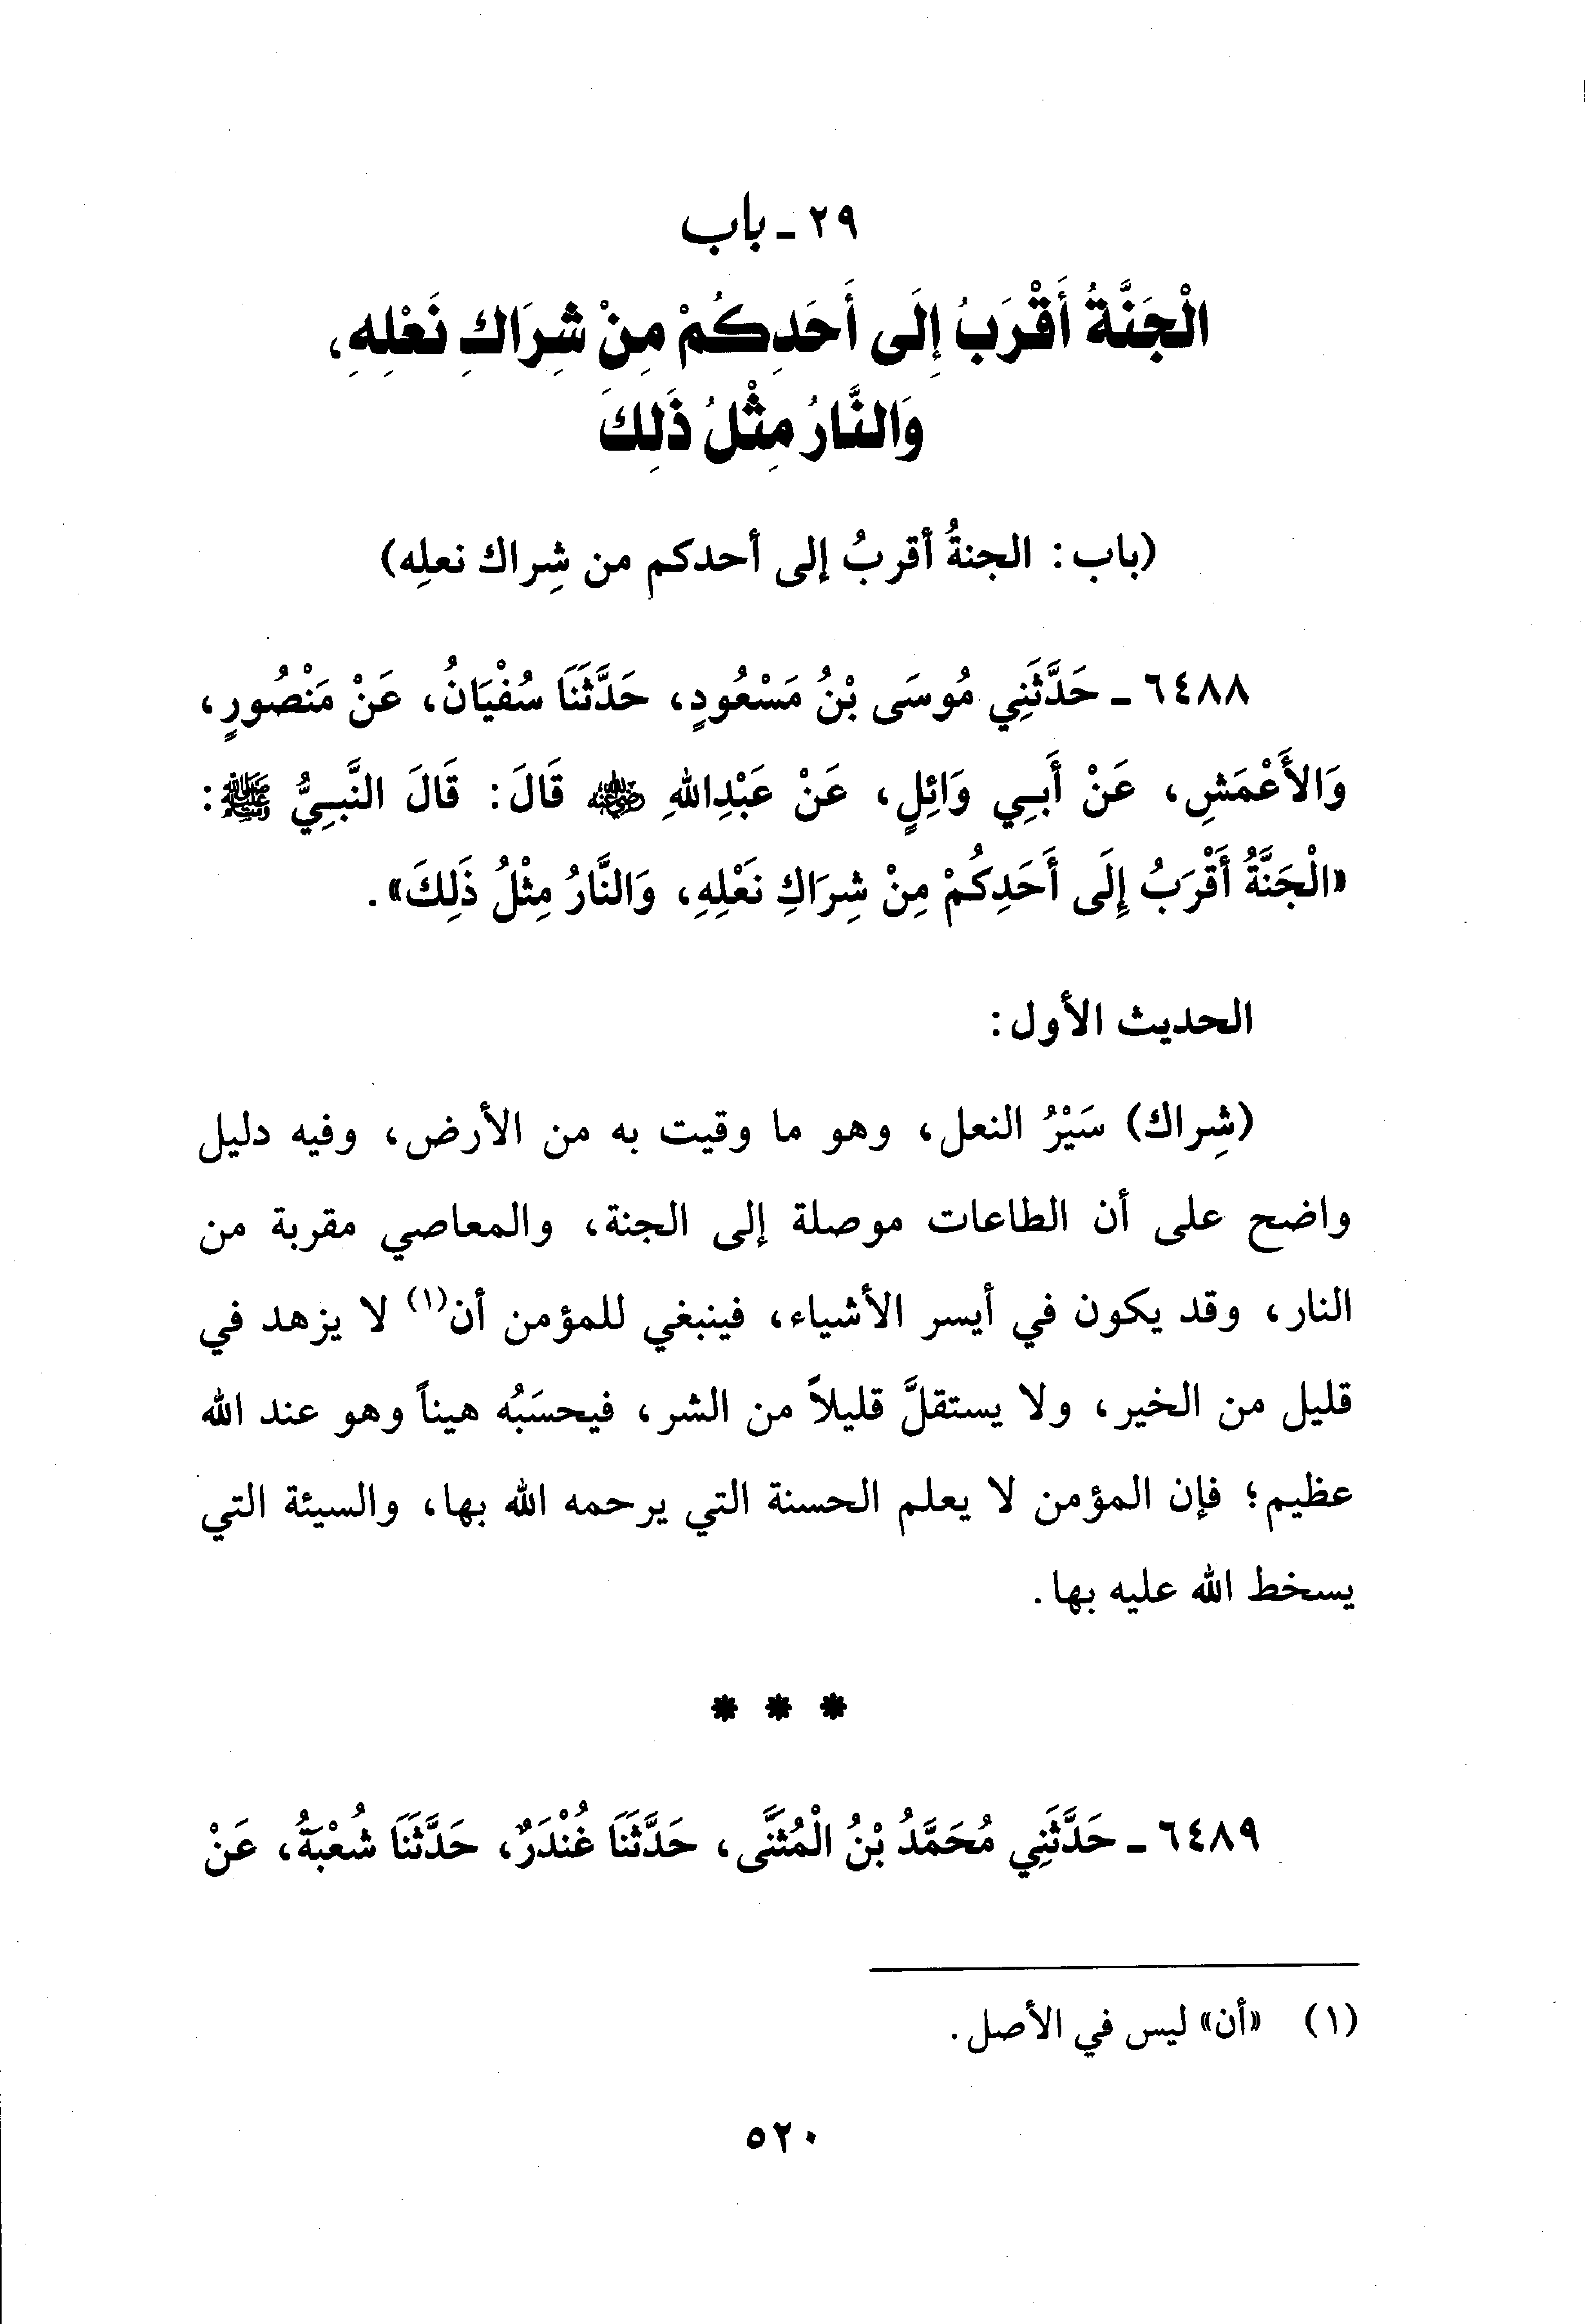 ٢٩ - باب
الْجَنَّةُ أَقْرَبُ إِلَى أَحَدِكُمْ مِنْ شِرَاكِ نَعْلِهِ،
وَالنَّارُ مِثْلُ ذَلِكَ
(باب: الجنةُ أقربُ إلى أحدكم من شِراك نعلِه)
٦٤٨٨ - حَدَّثَنِي مُوسَى بْنُ مَسْعُودٍ، حَدَّثَنَا سُفْيَانُ، عَنْ مَنْصُورٍ،
وَالأَعْمَشِ، عَنْ أَبِي وَائِلٍ، عَنْ عَبْدِاللهِ رضي الله عنه قَالَ: قَالَ النَّبِيُّ ﷺ:
«الْجَنَّةُ أَقْرَبُ إِلَى أَحَدِكُمْ مِنْ شِرَاكِ نَعْلِهِ، وَالنَّارُ مِثْلُ ذَلِكَ».
الحديث الأول:
(شِراك) سَيْرُ النعل، وهو ما وقيت به من الأرض، وفيه دليل
واضح على أن الطاعات موصلة إلى الجنة، والمعاصي مقربة من
النار، وقد يكون في أيسر الأشياء، فينبغي للمؤمن أن(١) لا يزهد في
قليل من الخير، ولا يستقلَّ قليلاً من الشر، فيحسَبُه هيناً وهو عند الله
عظيم؛ فإن المؤمن لا يعلم الحسنة التي يرحمه الله بها، والسيئة التي
يسخط الله عليه بها.
* * *
٦٤٨٩ - حَدَّثَنِي مُحَمَّدُ بْنُ الْمُثَنَّى، حَدَّثَنَا غُنْدَرٌ، حَدَّثَنَا شُعْبَةُ، عَنْ
(١) «أن» ليس في الأصل.
٥٢٠